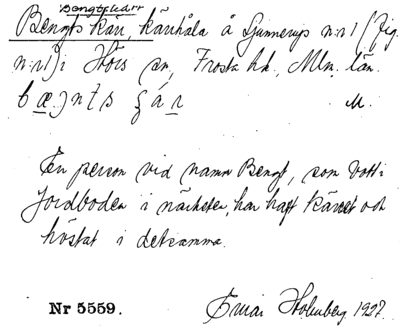 Bengtskärr
Bengts kärr, kärrhåla å Gunnerup n:r 1 (fig.
n:r 1) i Hörs sn, Frosta hd, Mlm. län.
M.
En person vid namn Bengt, som bott i
jordboden i närheten, har haft kärret och
höstat i detsamma.
Nr 5559. Einar Holmberg 1927.